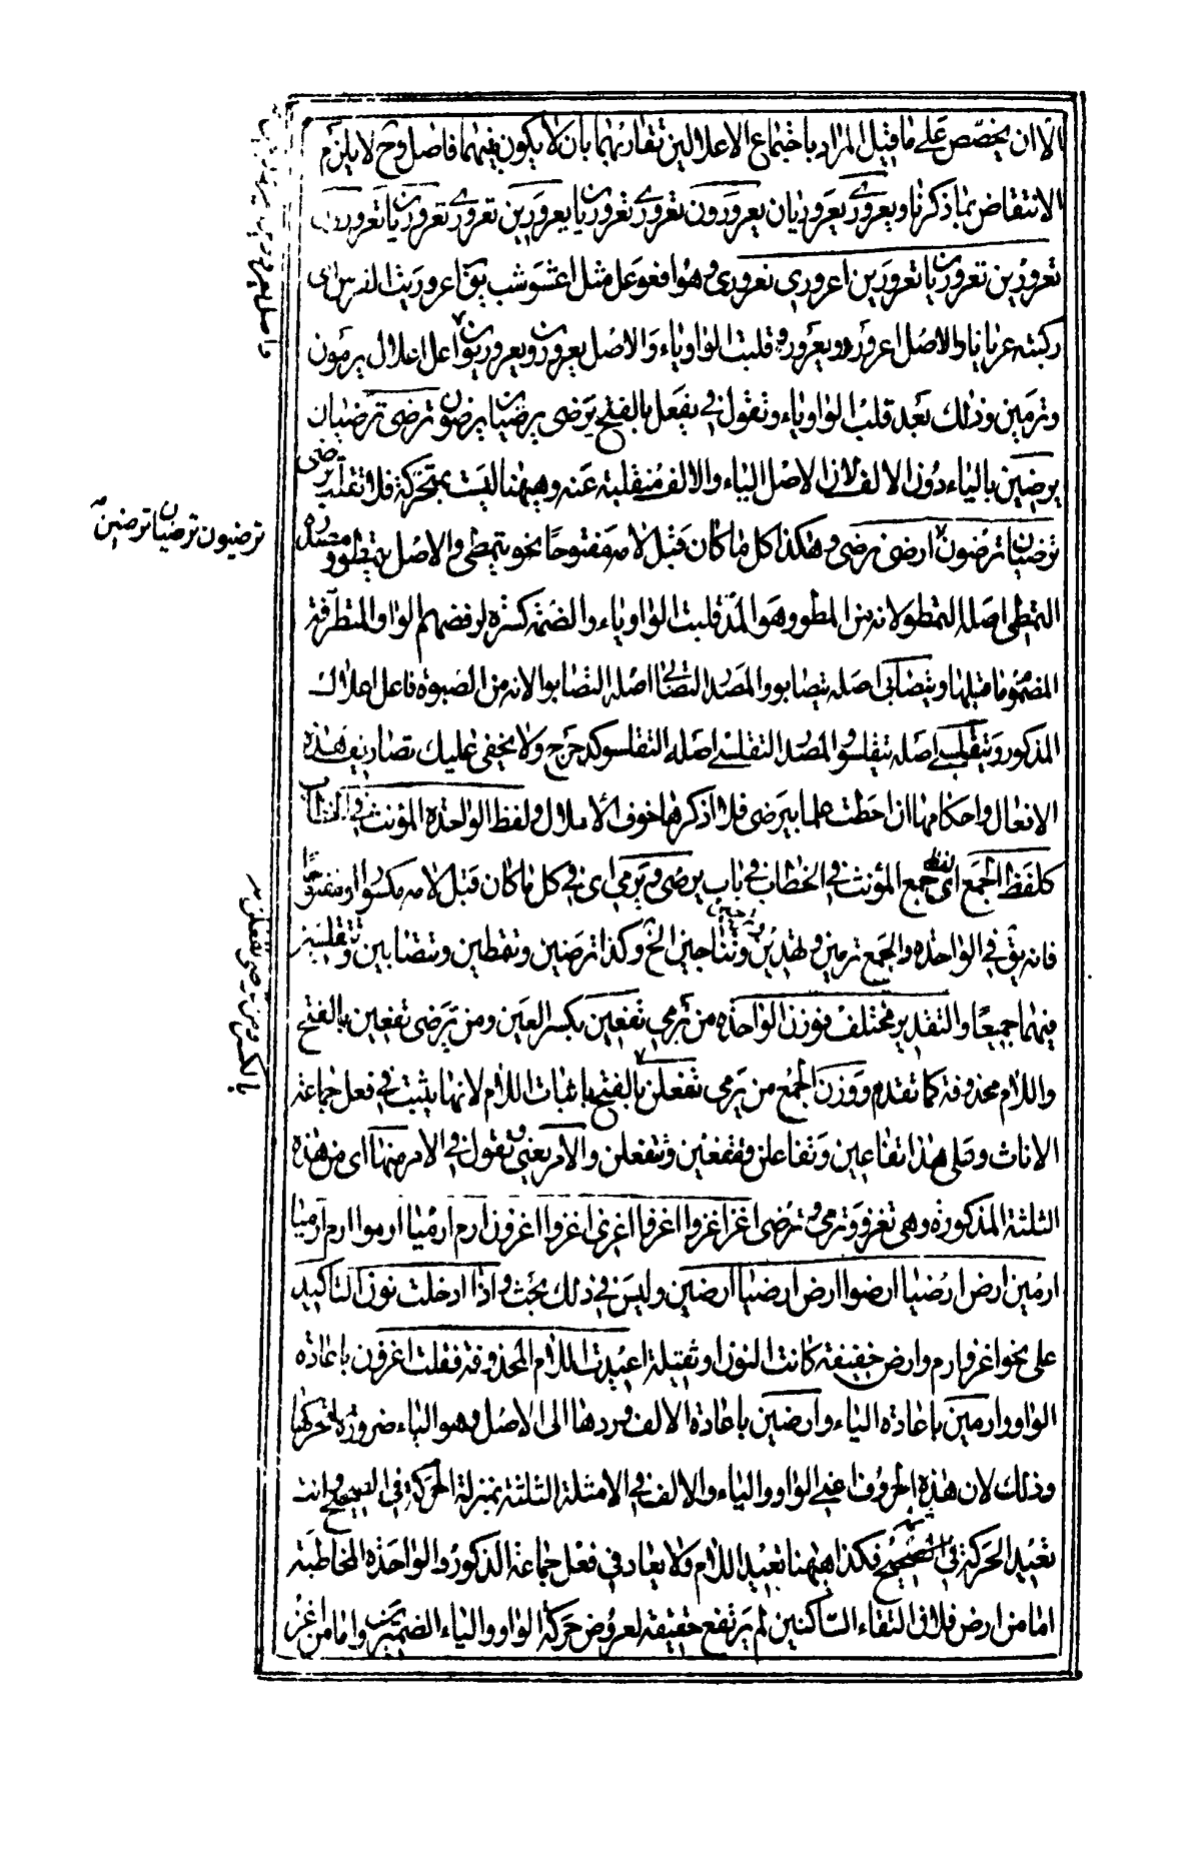 الا ان يخصص على ما قيل المراد باجتماع الاعلالين تقاربهما بان لا يكون بينهما فاصل وح لا يلزم
الانتقاض بما ذكرنا ويعروري يعروريان يعرورون تعروري تعروريان يعرورين تعروري تعروريان تعرورون
تعرورين تعروريان تعرورين اعروري نعروري وهو افعوعل مثل اعشوشب يق اعروريت الفرس اى
ركبته عريانا والاصل اعرورو ويعرورو قلبت الواو ياء والاصل يعرورون ويعروريون اعل اعلال يرمون
وترمين وذلك بعد قلب الواو ياء وتقول في يفعل بالفتح يرضى يرضيان يرضون ترضى ترضيان
يرضين بالياء دون الالف لان الاصل الياء والالف منقلبة عنه وههنا ليست بمتحركة فلا تقلب ترضى
ترضيان ترضون ارضى نرضى وهكذا كل ما كان قبل لامه مفتوحا نحو يتمطى والاصل يتمطو ومصدره
التمطى اصله التمطو لانه من المطو وهو المد قلبت الواو ياء والضمة كسرة لرفضهم الواو المتطرفة
المضموم ما قبلها ويتصابى اصله يتصابو والمصدر التصابى اصله التصابو لانه من الصبوة فاعل اعلال
المذكور ويتقلسى اصله يتقلسو والمصدر التقلسى اصله التقلسو كتدحرج ولا يخفى عليك تصاريف هذه
الافعال واحكامها ان احطت علما بيرضى فلا اذكرها خوف الاملال ولفظ الواحدة المؤنث في الخطاب
كلفظ الجمع اى لفظ جمع المؤنث في الخطاب في باب يرضى ويرمى اى في كل ما كان قبل لامه مكسورا او مفتوحا
فانه يق في الواحدة والجمع ترمين وتهدين وتناجين الخ وكذا ترضين وتتمطين وتتصابين وتتقلسين
فيهما جميعا والتقدير مختلف فوزن الواحدة من ترمى تفعين بكسر العين ومن ترضى تفعين بالفتح
واللام محذوفة كما تقدم ووزن الجمع من ترمى تفعلن بالفتح باثبات اللام لانها يثبت في فعل جماعة
الاناث وصلى هذا تفاعين وتفاعلن وتفعين وتفعلن والامر يعنى وتقول في الامر منها اى من هذه
الثلثة المذكورة وهى تغزو وترمى وترضى اغز اغزوا اغزوا اغزى اغزوا اغزون ارم ارميا ارموا ارمى ارميا
ارمين ارض ارضيا ارضوا ارض ارضيا ارضين وليس في ذلك بحث واذا ادخلت نون التاكيد
على نحو اغز وارم وارض خفيفة كانت النون او ثقيلة اعيدت اللام المحذوفة فقلت اغزون باعادة
الواو وارمين باعادة الياء وارضين باعادة الالف وردها الى الاصل وهو الياء ضرورة تحركها
وذلك لان هذه الحروف اعنى الواو والياء والالف في الامثلة الثلثة بمنزلة الحركة في الصحيح وانت
تعيد الحركة في الصحيح فكذا ههنا تعيد اللام ولا يعاد في فعل جماعة الذكور والواحدة المخاطبة
اما من ارض فلان التقاء الساكنين لم يرتفع حقيقة لعروض حركة الواو والياء الضميرين واما من اغز
ترضيون ترضيان ترضين
بالكسر ومن ترضى تتفعلن